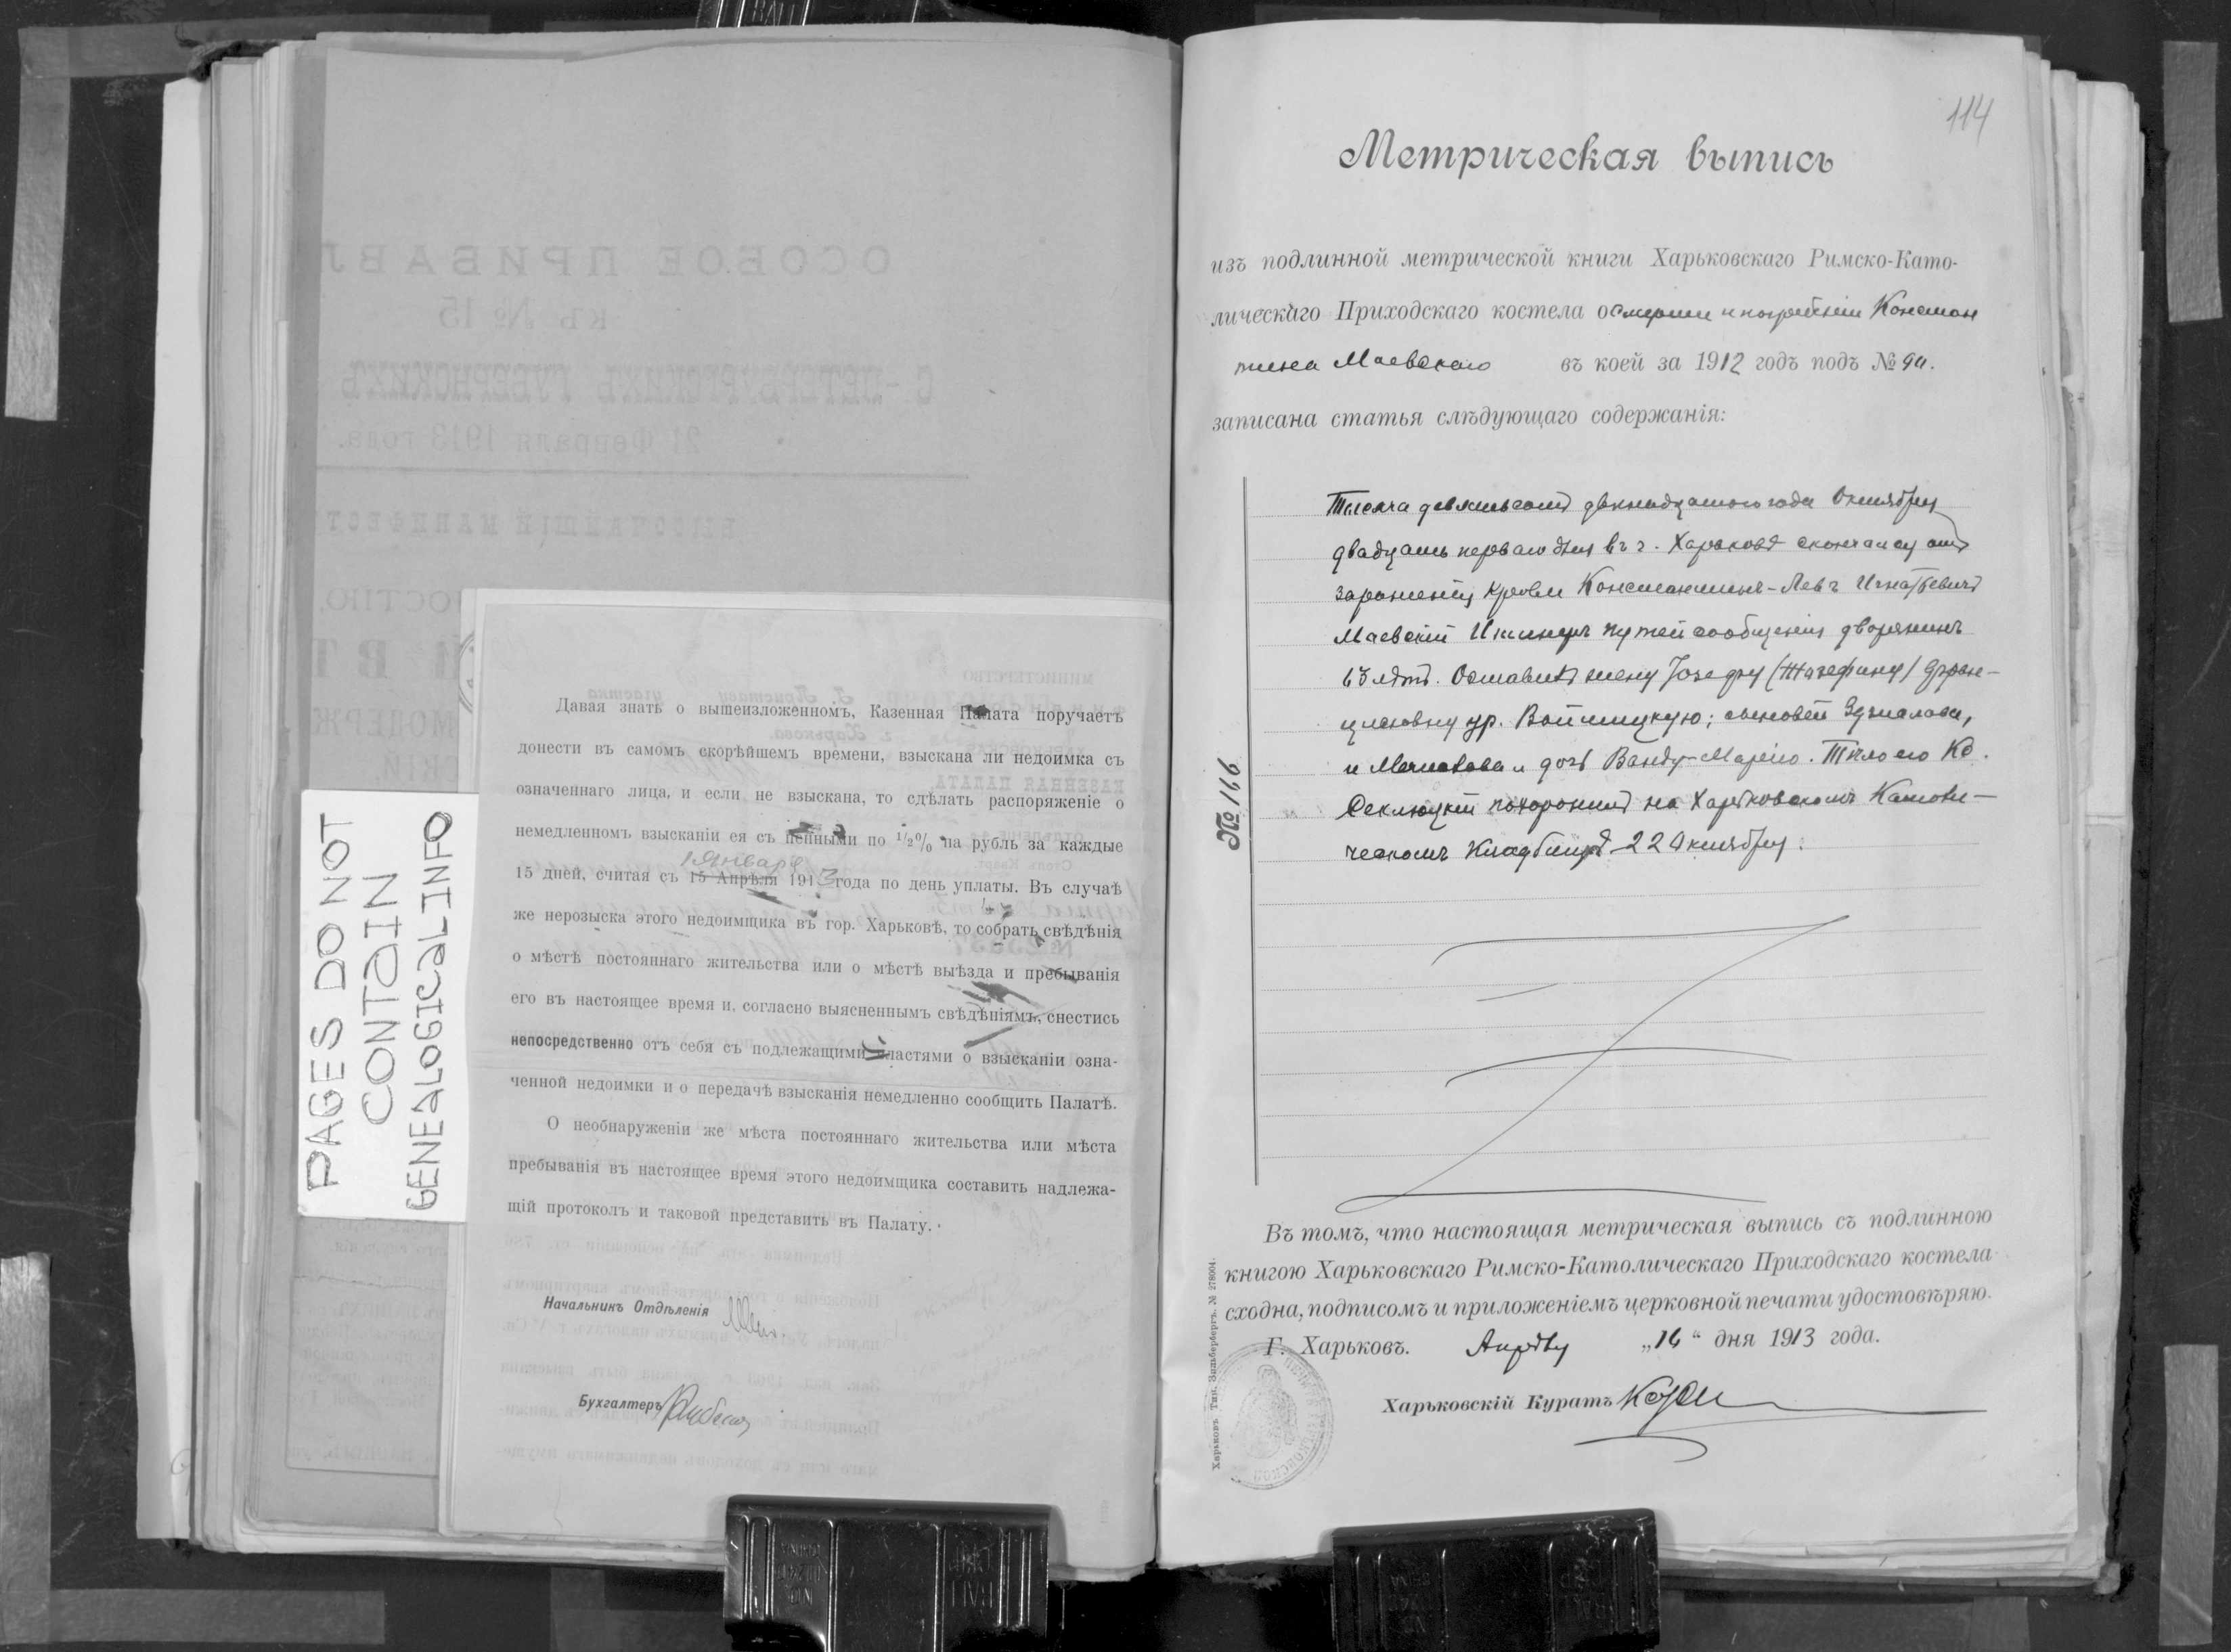 PAGES DO NOT
CONTAIN
GENEALOGICAL INFO
Давая знать о вышеизложенномъ, Казенная Палата поручаетъ
донести въ самомъ скорѣйшемъ времени, взыскана ли недоимка съ
означеннаго лица, и если не взыскана, то сдѣлать распоряженіе о
немедленномъ взысканіи ея съ пенными по 1/2% на рубль за каждые
1 Января
15 дней, считая съ 15 Апрѣля 1913 года по день уплаты. Въ случаѣ
же нерозыска этого недоимщика въ гор. Харьковѣ, то собрать свѣдѣнія
о мѣстѣ постояннаго жительства или о мѣстѣ выѣзда и пребыванія
его въ настоящее время и, согласно выясненнымъ свѣдѣніямъ, снестись
непосредственно отъ себя съ подлежащими властями о взысканіи озна-
ченной недоимки и о передачѣ взысканія немедленно сообщить Палатѣ.
О необнаруженіи же мѣста постояннаго жительства или мѣста
пребыванія въ настоящее время этого недоимщика составить надлежа-
щій протоколъ и таковой представить въ Палату.
Начальникъ Отдѣленія
Бухгалтеръ
114
Метрическая выпись
изъ подлинной метрической книги Харьковскаго Римско-Като-
лическаго Приходскаго костела о смерти и погребеніи Констан
тина Маевскаго въ коей за 1912 годъ подъ №
записана статья слѣдующаго содержанія:
№ 166
Тысяча девятьсотъ двѣнадцатого года Октября
двадцать перваго дня въ г. Харьковѣ скончался отъ
зараженія крови Константинъ-Левъ Игнатьевичъ
Маевскій Инженеръ путей сообщенія дворянинъ
63 лѣтъ. Оставилъ жену Іозефу (Жозефину) Фран-
цисковну ур. Войтицкую; сыновей
и дочь Ванду-Марію. Тѣло его Кс.
похоронилъ на Харьковскомъ Католи-
ческомъ Кладбищѣ 22 Октября.
Въ томъ, что настоящая метрическая выпись съ подлинною
книгою Харьковскаго Римско-Католическаго Приходскаго костела
сходна, подписомъ и приложеніемъ церковной печати удостовѣряю.
Г. Харьковъ. Апрѣля „16“ дня 1913 года.
Харьковскій Куратъ
Харьковъ. Тип. Зильбербергъ. № 278004.